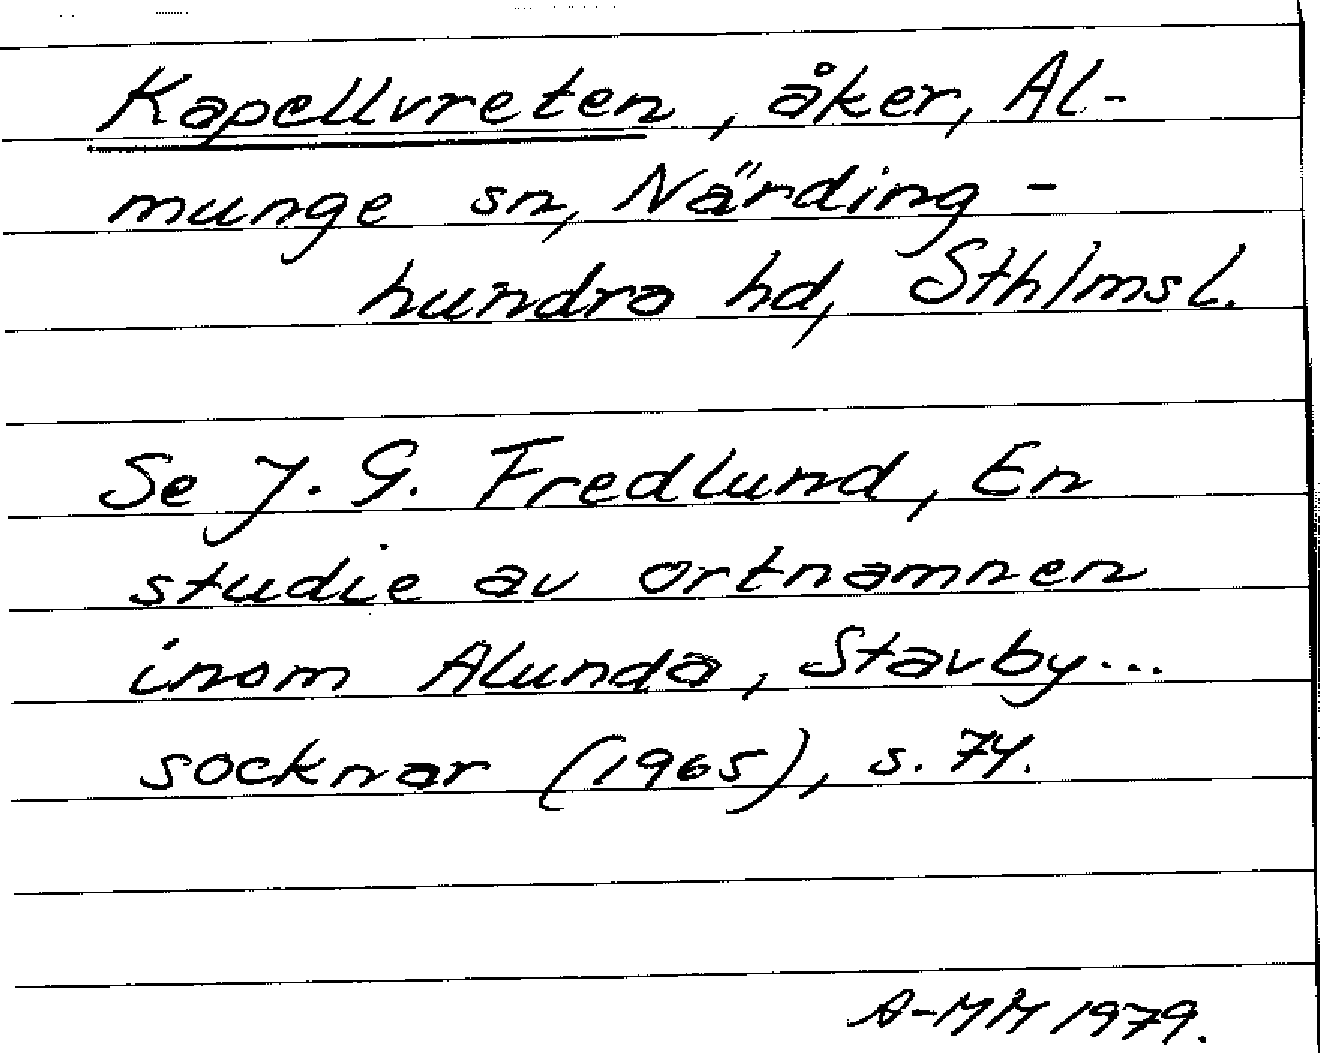 Kapellvreten, åker, Al-
munge sn, Närding-
hundra hd, Sthlmsl.
Se J. G. Fredlund, En
studie av ortnamnen
inom Alunda, Stavby...
socknar (1965), s. 74.
A-MM 1979.